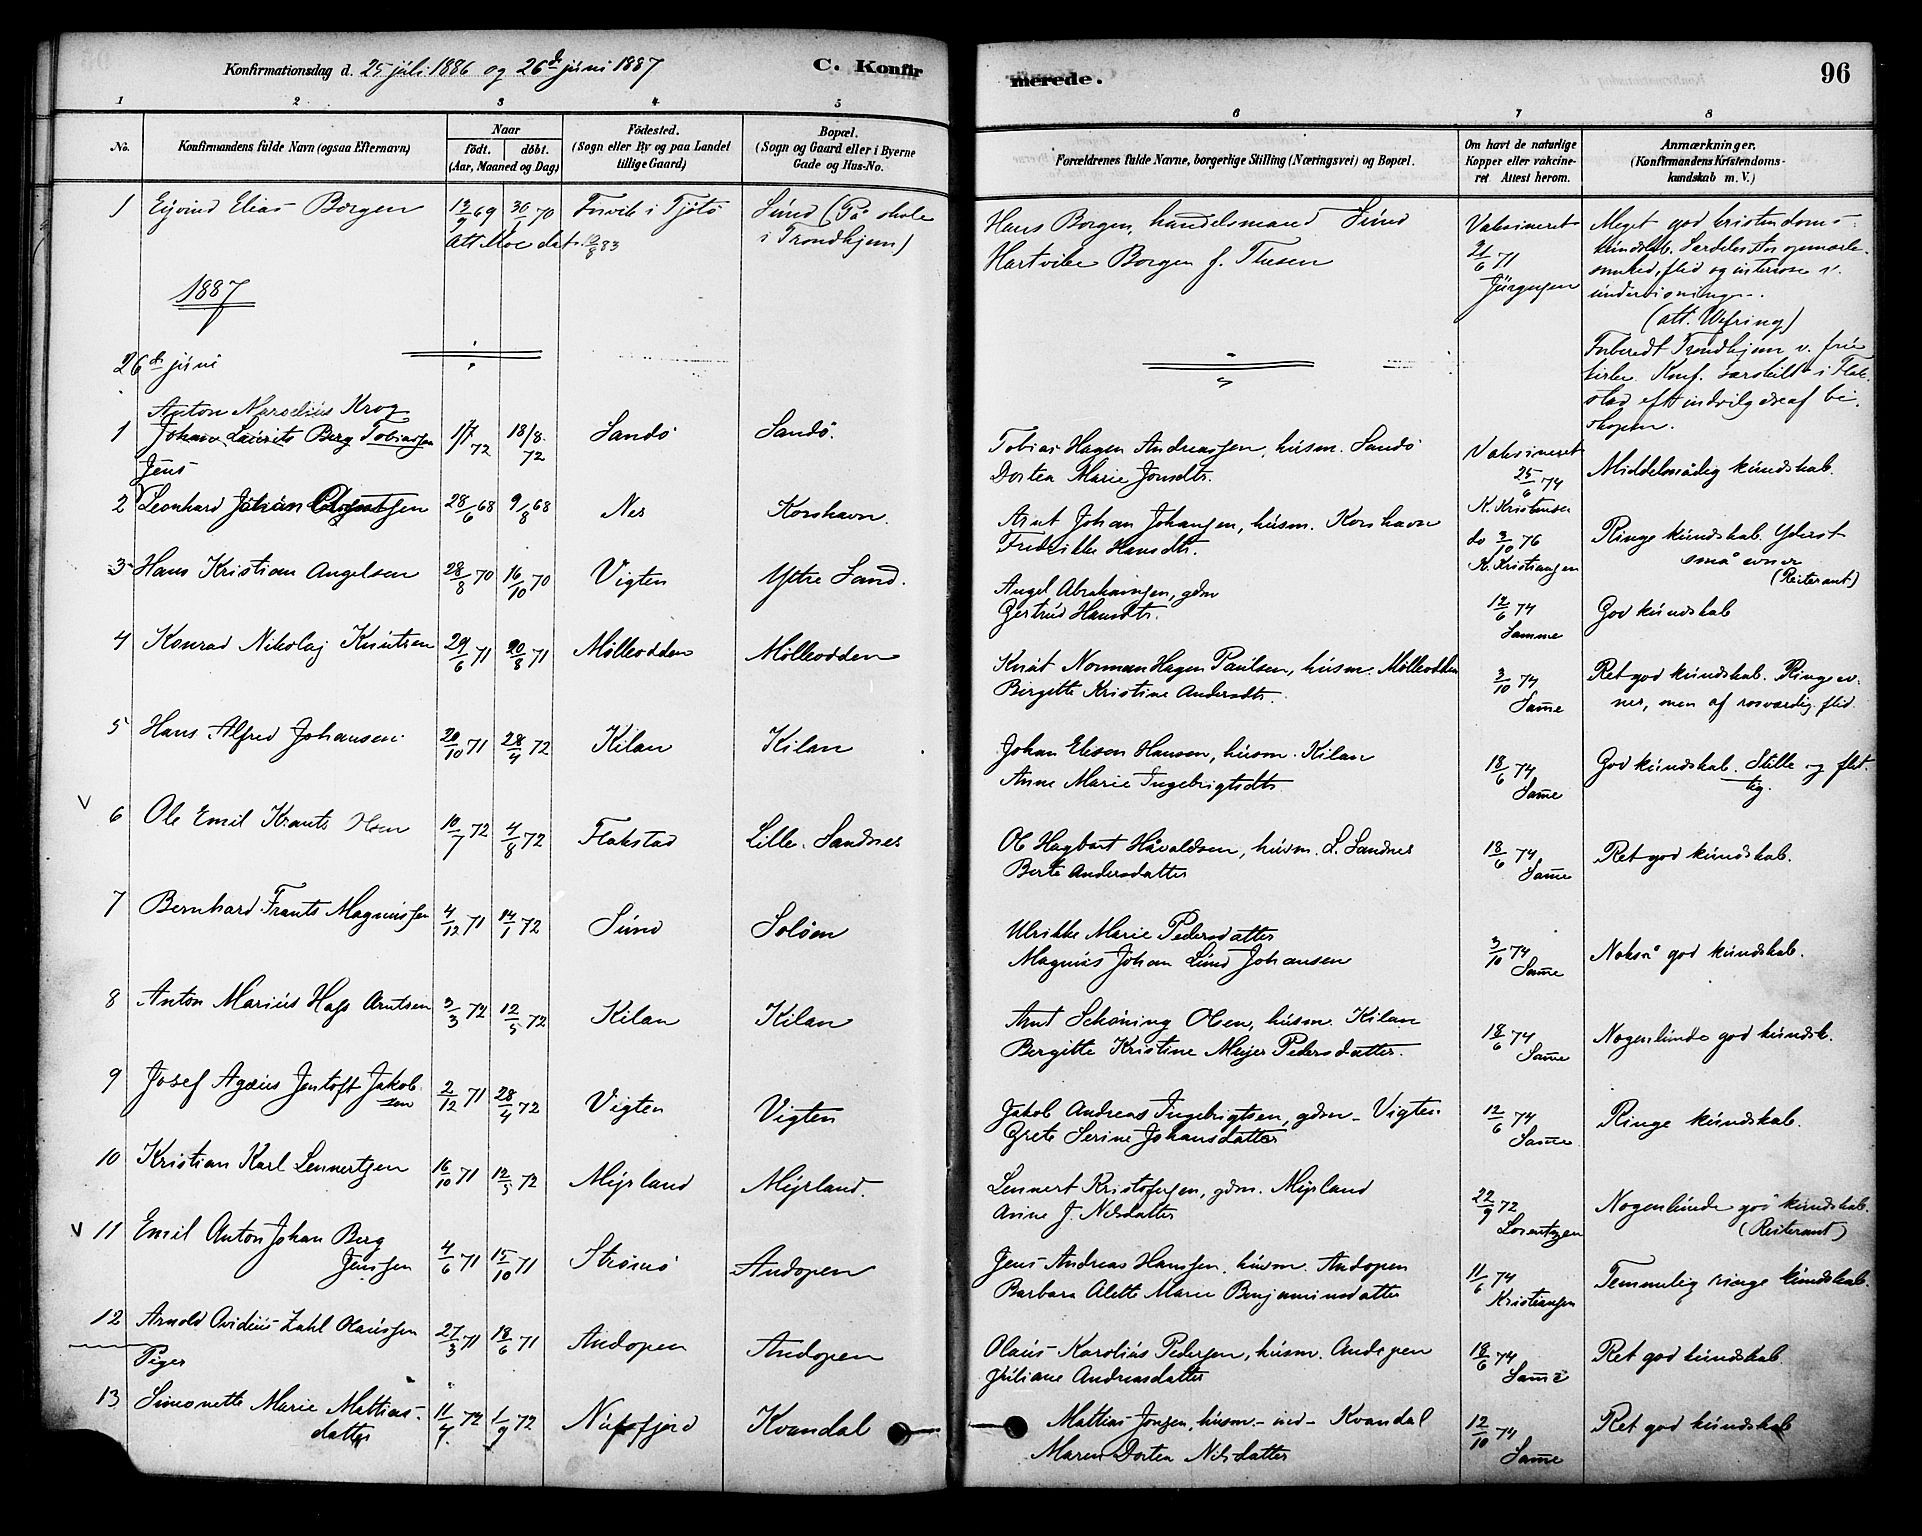 Konfirmationsdag d. 25 juli 1886 og 26de juni 1887
C. Konfirmerede.
96
1 2 3 4 5 6 7 8
No.
Konfirmandens fulde Navn (ogsaa Efternavn)
Naar
födt. döbt.
(Aar, Maaned og Dag)
Födested.
(Sogn eller By og paa Landet
tillige Gaard)
Bopæl.
(Sogn og Gaard eller i Byerne
Gade og Hus-No.
Forældrenes fulde Navne, borgerlige Stilling (Næringsvei) og Bopæl.
Om havt de naturlige
Kopper eller vakcine-
ret Attest herom.
Anmærkninger.
(Konfirmandens Kristendoms-
kundskab m. V.)
1 Ejvind Elias Borgen 13/9 69 30/1 70 Forvik i Tjötö Sund (På skole
i Trondhjem)
Att. Moe dat. 12/8 83
Hans Borgen, handelsmand Sund
Hartvike Borgen f. Thesen
Vaksineret
21/6 71
Jürgensen
Meget god kristendoms-
kundskab. Særdeles stor opmærk-
somhed, flid og interesse v.
undervisningen.
(att. Wefring)
Forberedt Trondhjem v. frue
kirke. Konf. særskilt i Flak-
stad eft. indvilgelse af bi-
skopen.
1887
26de juni
1 Anton Marselius Krog
Johan Laurits Berg Tobiassen 1/7 72 18/8 72 Sandö Sandö.
Tobias Hagen Andreassen, husm. Sandö
Dortea Marie Jonsdtr.
Vaksineret
25/6 74
K. Kristensen
Middelmådig kundskab.
Jens
2 Leonhard Johan Arntsen 28/6 68 9/8 68 Nes Korshavn.
Arnt Johan Johansen, husm. Korshavn
Fredrikke Hansdtr.
do 3/10 76
K. Kristiansen
Ringe kundskab. Yderst
små evner
(Reiterant)
3 Hans Kristian Angelsen 28/8 70 16/10 70 Vigten Ytre Sand.
Angel Abrahamsen, gdm
Gertrud Hansdtr.
12/6 74
Samme
God kundskab
4 Konrad Nikolaj Knutsen 29/6 71 20/8 71 Mölleodden Mölleodden
Knut Norman Hagen Paulsen, husm. Mölleodden
Birgitte Kristine Andersdtr.
3/10 74
Same
Ret god kundskab. Ringe ev-
ner, men af rosværdig flid.
5 Hans Alfred Johansen 20/10 71 28/4 72 Kilan Kilan
Johan Elisen Hansen, husm. Kilan
Anne Marie Ingebrigtsdtr.
18/6 74
Same
God kundskab. Stille og flit-
tig.
V
6 Ole Emil Krants Olsen 10/7 72 4/8 72 Flakstad Lille-Sandnes
Ole Hagbart Håvaldsen, husm. L. Sandnes
Berte Andersdatter
18/6 74
Same
Ret god kundskab.
7 Bernhard Frants Magnussen 4/12 71 14/1 72 Sund Solöen
Ulrikke Marie Pedersdatter
Magnus Johan Lund Johansen
3/10 74
Same
Nokså god kundskab.
8 Anton Marius Hass Arntsen 3/3 72 12/5 72 Kilan Kilan
Arnt Schöning Olsen, husm. Kilan
Bergitte Kristine Meyer Pedersdatter.
18/6 74
Same
Nogenlunde god kundsk.
9 Josef Agæus Jentoft Jakob-
sen 2/12 71 28/4 72 Vigten Vigten
Jakob Andreas Ingebrigtsen, gdm. Vigten
Grete Serine Johansdatter
12/6 74
Same
Ringe kundskab.
10 Kristian Karl Lennertsen 16/10 71 12/5 72 Myrland Myrland.
Lennert Kristofersen, gdm. Myrland
Anne J. Nilsdatter
22/9 72
Lorentzen
Nogenlunde god kundskab.
(Reiterant)
V
11 Emil Anton Johan Berg
Jenssen 4/6 71 15/10 71 Strömö Andopen
Jens Andreas Hanssen, husm. Andopen
Barbara Alette Marie Benjaminsdatter
11/6 74
Kristiansen
Temmelig ringe kundskab.
12 Arnold Ovidius Zahl Olaussen 27/3 71 18/6 71 Andopen Andopen
Olaus Karolius Pedersen, husm. Andopen
Juliane Andreasdatter
18/6 74
Same
Ret god kundskab.
Piger
13 Simonette Marie Mattias-
datter 11/7 72 1/9 72 Nufsfjord Kvandal
Mattias Jonsen, husm. ind. Kvandal
Maren Dortea Nilsdatter
12/10 74
Same
Ret god kundskab